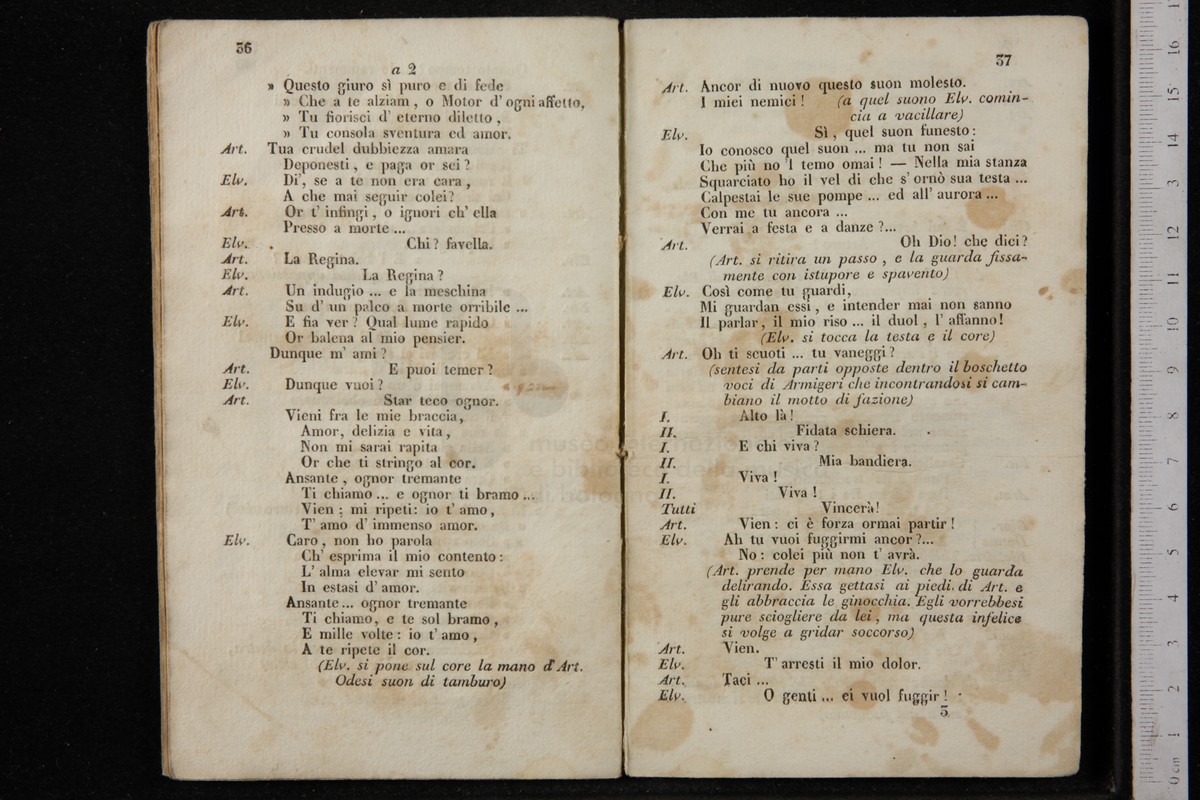 36
a 2
» Questo giuro sì puro e di fede
» Che a te alziam, o Motor d' ogni affetto,
» Tu fiorisci d' eterno diletto,
» Tu consola sventura ed amor.
Art. Tua crudel dubbiezza amara
Deponesti, e paga or sei?
Elv. Di', se a te non era cara,
A che mai seguir colei?
Art. Or t' infingi, o ignori ch' ella
Presso a morte ...
Elv. Chi? favella.
Art. La Regina.
Elv. La Regina?
Art. Un indugio ... e la meschina
Su d' un palco a morte orribile ...
Elv. E fia ver? Qual lume rapido
Or balena al mio pensier.
Dunque m' ami?
Art. E puoi temer?
Elv. Dunque vuoi?
Art. Star teco ognor.
Vieni fra le mie braccia,
Amor, delizia e vita,
Non mi sarai rapita
Or che ti stringo al cor.
Ansante, ognor tremante
Ti chiamo ... e ognor ti bramo ...
Vien: mi ripeti: io t' amo,
T' amo d' immenso amor.
Elv. Caro, non ho parola
Ch' esprima il mio contento:
L' alma elevar mi sento
In estasi d' amor.
Ansante ... ognor tremante
Ti chiamo, e te sol bramo,
E mille volte: io t' amo,
A te ripete il cor.
(Elv. si pone sul core la mano d' Art.
Odesi suon di tamburo)
37
Art. Ancor di nuovo questo suon molesto.
I miei nemici! (a quel suono Elv. comin-
cia a vacillare)
Elv. Sì, quel suon funesto:
Io conosco quel suon ... ma tu non sai
Che più no 'l temo omai! — Nella mia stanza
Squarciato ho il vel di che s' ornò sua testa ...
Calpestai le sue pompe ... ed all' aurora ...
Con me tu ancora ...
Verrai a festa e a danze?...
Art. Oh Dio! che dici?
(Art. si ritira un passo, e la guarda fissa-
mente con istupore e spavento)
Elv. Così come tu guardi,
Mi guardan essi, e intender mai non sanno
Il parlar, il mio riso ... il duol, l' affanno!
(Elv. si tocca la testa e il core)
Art. Oh ti scuoti ... tu vaneggi?
(sentesi da parti opposte dentro il boschetto
voci di Armigeri che incontrandosi si cam-
biano il motto di fazione)
I. Alto là!
II. Fidata schiera.
I. E chi viva?
II. Mia bandiera.
I. Viva!
II. Viva!
Tutti Vincerà!
Art. Vien: ci è forza ormai partir!
Elv. Ah tu vuoi fuggirmi ancor?...
No: colei più non t' avrà.
(Art. prende per mano Elv. che lo guarda
delirando. Essa gettasi ai piedi di Art. e
gli abbraccia le ginocchia. Egli vorrebbesi
pure sciogliere da lei, ma questa infelice
si volge a gridar soccorso)
Art. Vien.
Elv. T' arresti il mio dolor.
Art. Taci ...
Elv. O genti ... ei vuol fuggir!
3